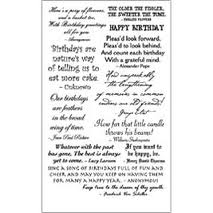 Here's a posy of flowers,
and a basket too,
With Birthday greetings
all for you!
~Anonymous
THE OLDER THE FIDDLER,
THE SWEETER THE TUNE.
~ ENGLISH PROVERB
HAPPY BIRTHDAY
Pleas'd to look forward,
Pleas'd to look behind,
And count each birthday
With a grateful mind.
~Alexander Pope
Birthdays are
nature's way
of telling us to
eat more cake.
~Unknown
And unspeakably
the
of memories in common
endears us to old friends!
Our birthdays
are feathers
in the broad
wing of time.
Jean Paul Richter
How far that little candle
throws his beams!
~William Shakespeare
Whatever with the past
has gone, The best is always
yet to come. ~Lucy Larcom
If you want to
be happy, be.
~Henry David
SING A SONG OF BIRTHDAYS FULL OF FUN AND
CHEER AND MAY YOU KEEP ON HAVING THEM
FOR MANY A HAPPY YEAR. ~ANONYMOUS
Keep true to the dreams of thy youth.
~Friedrich Von Schiller